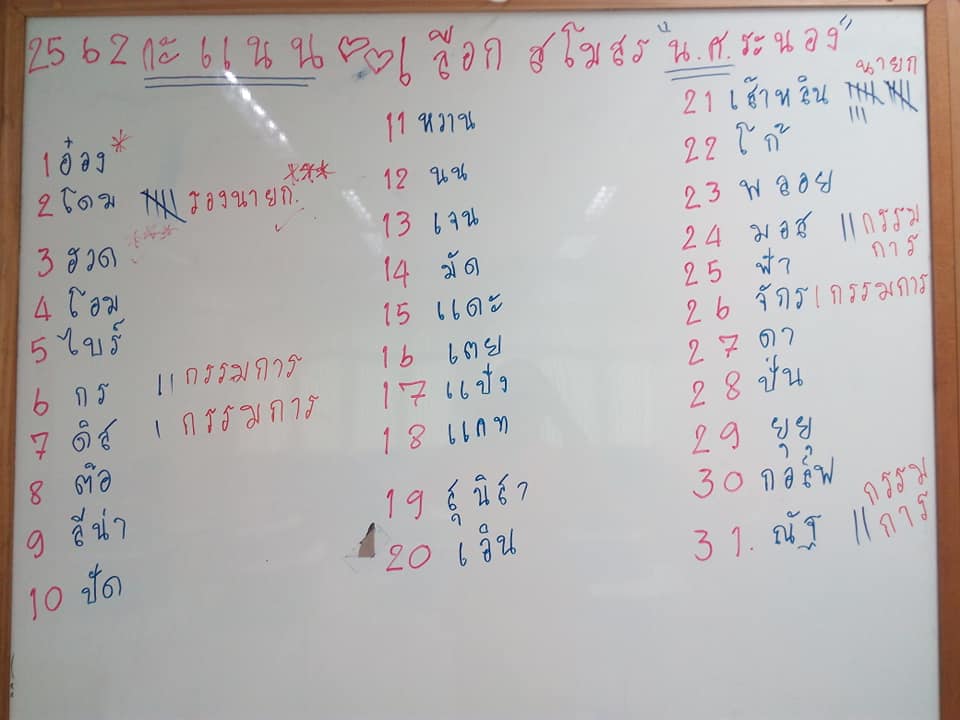 2562 กะแนน ♡♡ เลือก สโมสร "น.ศ. ระนอง"
1 อ๋อง *
2 โดม |||| รองนายก. ***
3 ฮวด ***
4 โอม
5 ไบร์
6 กร || กรรมการ
7 ดิส | กรรมการ
8 ต๊อ
9 ลีน่า
10 ปัด
11 หวาน
12 นน
13 เจน
14 มัด
15 แดะ
16 เตย
17 แป้ง
18 แคท
19 สุนิสา
20 เอิน
นายก
21 เส้าหลิน |||| |||| |||
22 โก๊
23 พลอย
24 มอส || กรรม
การ
25 ฟ้า
26 จักร | กรรมการ
27 ดา
28 ปั่น
29 ยุยุ
30 กอล์ฟ
31. ณัฐ || กรรม
การ